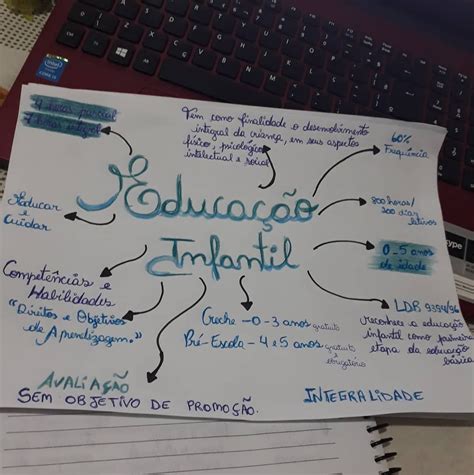 4 horas parcial
7 horas integral
Tem como finalidade o desenvolvimento
integral da criança, em seus aspectos
físico, psicológico
intelectual e social
60%
Frequência
Educação
Infantil
Educar e
cuidar
800 horas/
200 dias
letivos
0-5 anos
de idade
Competências e
Habilidades
"Direitos e Objetivos
de Aprendizagem."
Creche - 0 - 3 anos gratuito
Pré-Escola - 4 e 5 anos gratuito
e obrigatório
LDB 9394/96
reconhece a educação
infantil como primeira
etapa da educação
básica
AVALIAÇÃO
SEM OBJETIVO DE PROMOÇÃO.
INTEGRALIDADE
intel